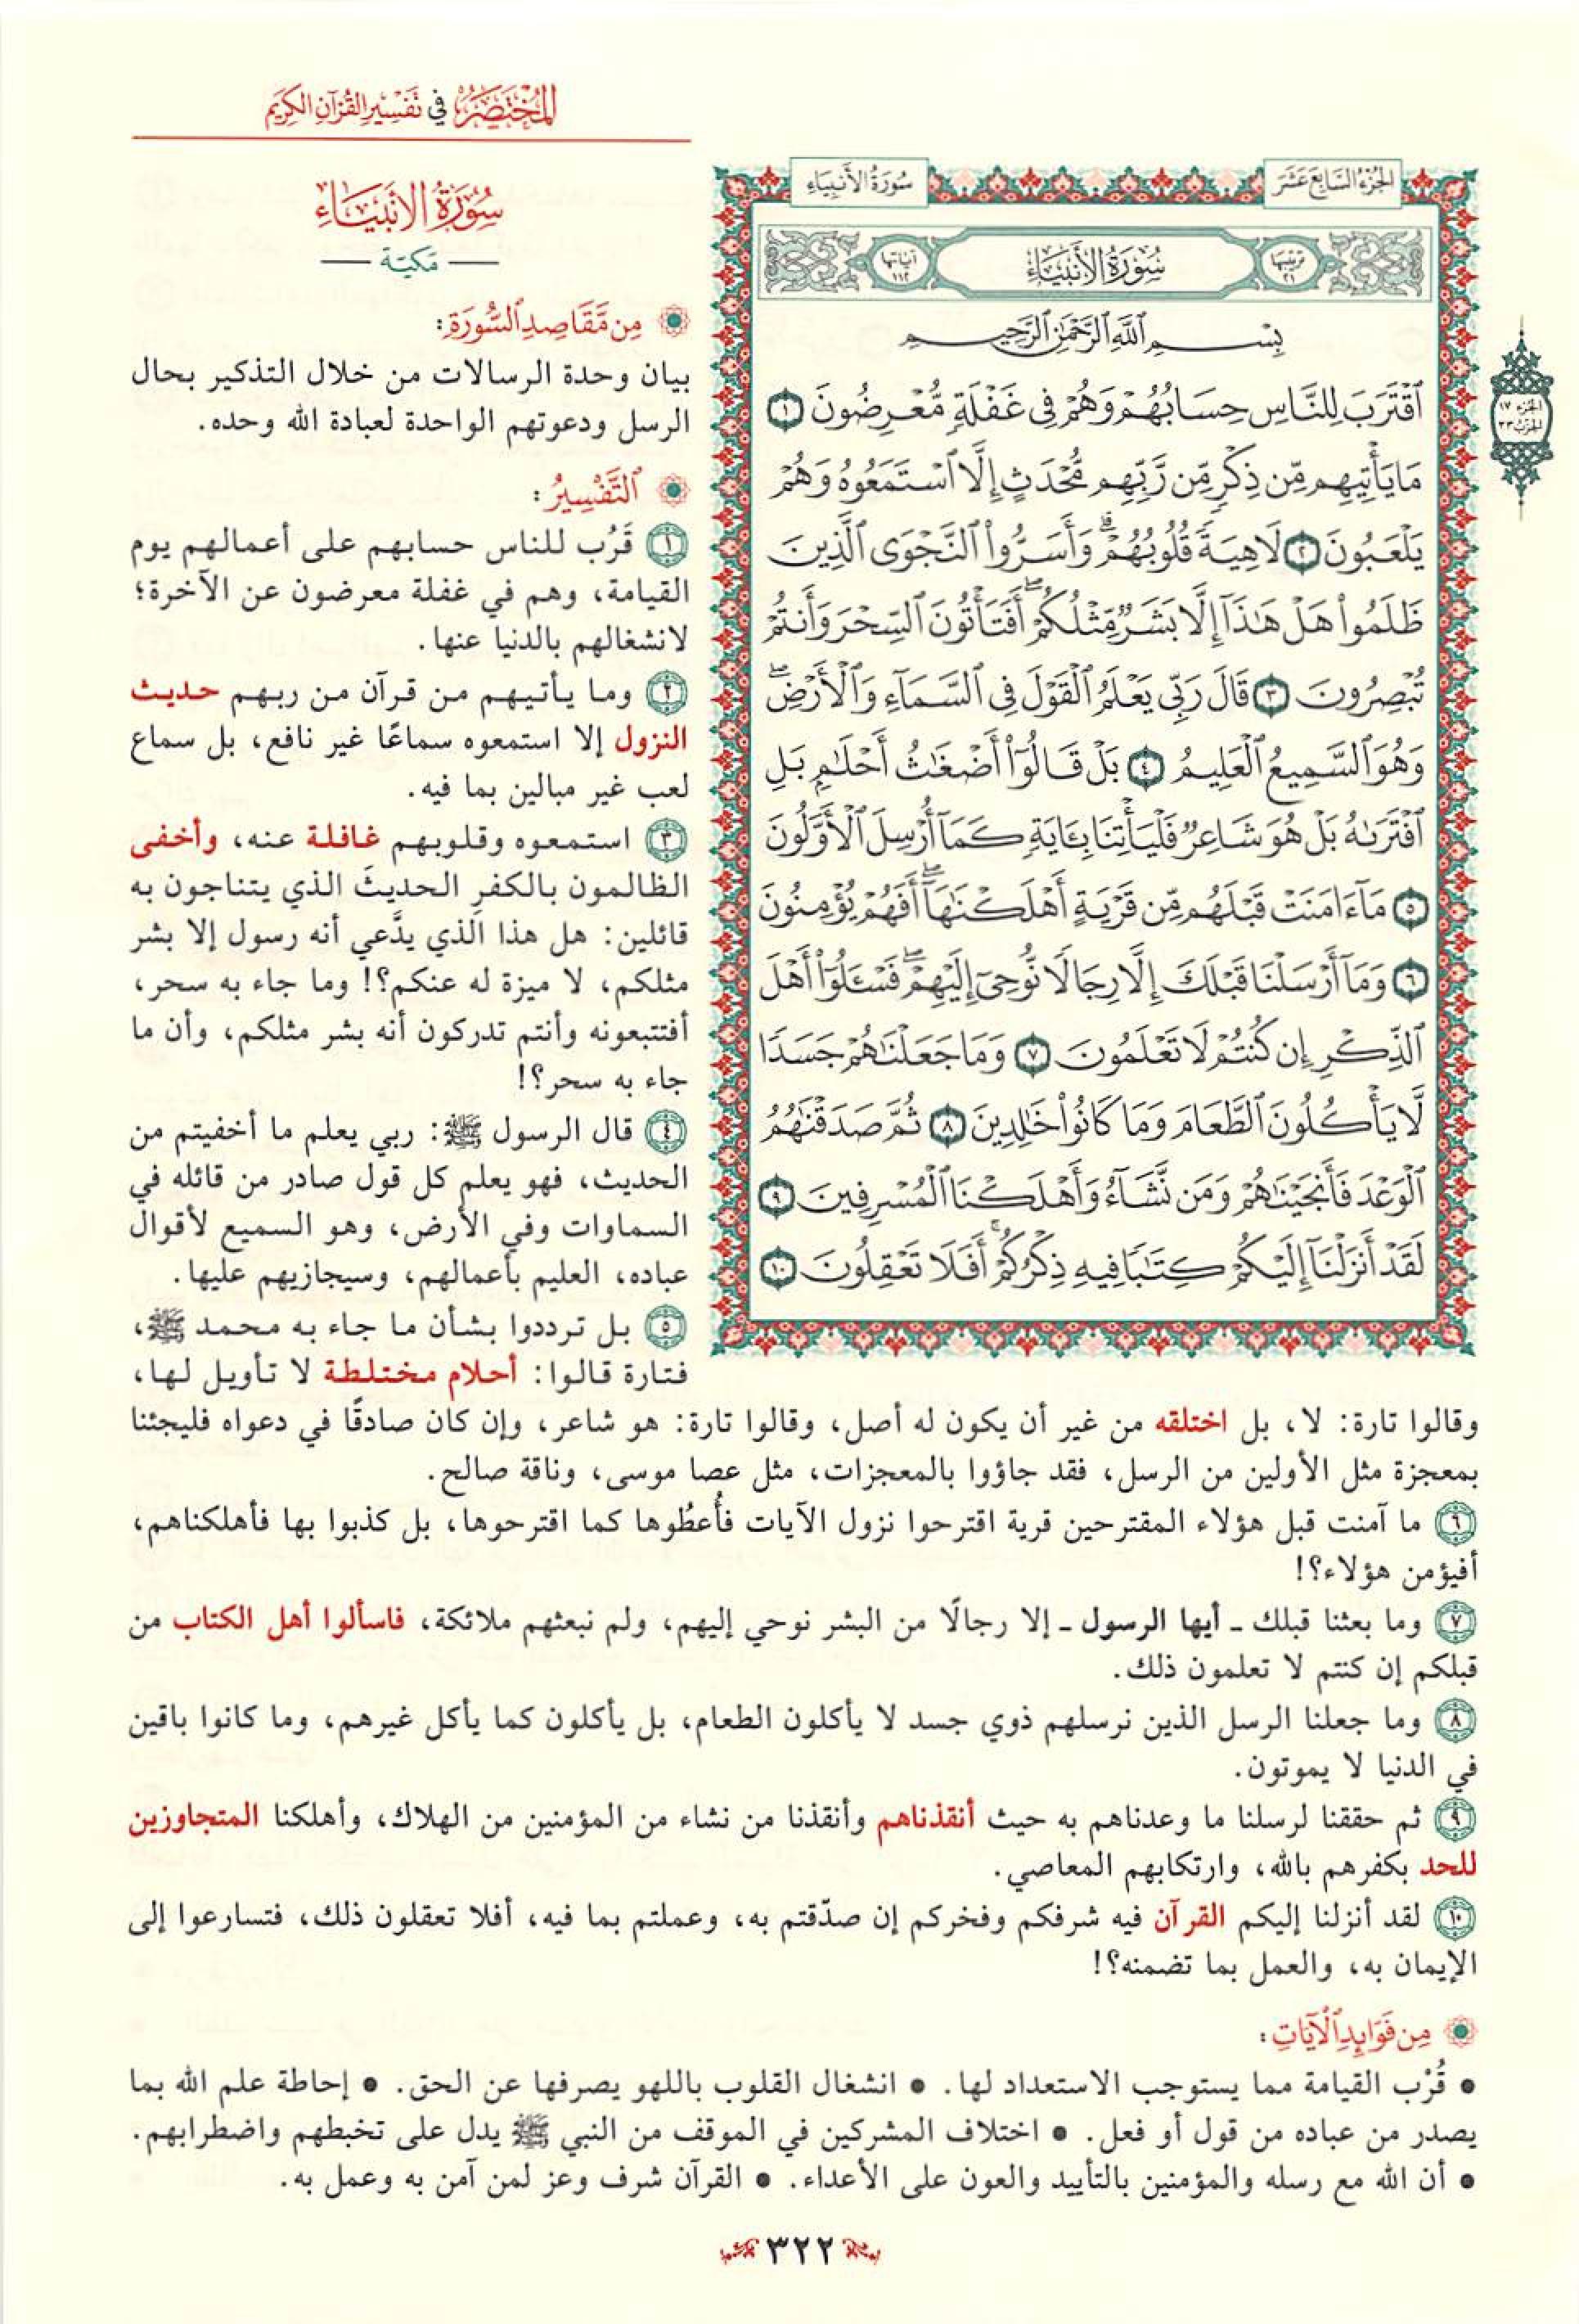 المختصر في تفسير القرآن الكريم
الجزء السابع عشر
سورة الأنبياء
ترتيبها ٢١
سُورَةُ الأَنبيَاء
آياتها ١١٢
الجزء ١٧
الحزب ٣٣
بِسْمِ ٱللَّهِ ٱلرَّحْمَٰنِ ٱلرَّحِيمِ
ٱقْتَرَبَ لِلنَّاسِ حِسَابُهُمْ وَهُمْ فِى غَفْلَةٍ مُّعْرِضُونَ ١
مَا يَأْتِيهِم مِّن ذِكْرٍ مِّن رَّبِّهِم مُّحْدَثٍ إِلَّا ٱسْتَمَعُوهُ وَهُمْ
يَلْعَبُونَ ٢ لَاهِيَةً قُلُوبُهُمْ ۗ وَأَسَرُّوا۟ ٱلنَّجْوَى ٱلَّذِينَ
ظَلَمُوا۟ هَلْ هَٰذَآ إِلَّا بَشَرٌ مِّثْلُكُمْ ۖ أَفَتَأْتُونَ ٱلسِّحْرَ وَأَنتُمْ
تُبْصِرُونَ ٣ قَالَ رَبِّى يَعْلَمُ ٱلْقَوْلَ فِى ٱلسَّمَآءِ وَٱلْأَرْضِ ۖ
وَهُوَ ٱلسَّمِيعُ ٱلْعَلِيمُ ٤ بَلْ قَالُوٓا۟ أَضْغَٰثُ أَحْلَٰمٍۭ بَلِ
ٱفْتَرَىٰهُ بَلْ هُوَ شَاعِرٌ فَلْيَأْتِنَا بِـَٔايَةٍ كَمَآ أُرْسِلَ ٱلْأَوَّلُونَ
٥ مَآ ءَامَنَتْ قَبْلَهُم مِّن قَرْيَةٍ أَهْلَكْنَٰهَآ ۖ أَفَهُمْ يُؤْمِنُونَ
٦ وَمَآ أَرْسَلْنَا قَبْلَكَ إِلَّا رِجَالًا نُّوحِىٓ إِلَيْهِمْ ۖ فَسْـَٔلُوٓا۟ أَهْلَ
ٱلذِّكْرِ إِن كُنتُمْ لَا تَعْلَمُونَ ٧ وَمَا جَعَلْنَٰهُمْ جَسَدًا
لَّا يَأْكُلُونَ ٱلطَّعَامَ وَمَا كَانُوا۟ خَٰلِدِينَ ٨ ثُمَّ صَدَقْنَٰهُمُ
ٱلْوَعْدَ فَأَنجَيْنَٰهُمْ وَمَن نَّشَآءُ وَأَهْلَكْنَا ٱلْمُسْرِفِينَ ٩
لَقَدْ أَنزَلْنَآ إِلَيْكُمْ كِتَٰبًا فِيهِ ذِكْرُكُمْ ۖ أَفَلَا تَعْقِلُونَ ١٠
سُورَةُ الأنبيَاء
مَكيّة
مِن مَّقَاصِدِ ٱلسُّورَةِ:
بيان وحدة الرسالات من خلال التذكير بحال
الرسل ودعوتهم الواحدة لعبادة الله وحده.
ٱلتَّفْسِيرُ:
١ قَرُب للناس حسابهم على أعمالهم يوم
القيامة، وهم في غفلة معرضون عن الآخرة؛
لانشغالهم بالدنيا عنها.
٢ وما يأتيهم من قرآن من ربهم حديث
النزول إلا استمعوه سماعًا غير نافع، بل سماع
لعب غير مبالين بما فيه.
٣ استمعوه وقلوبهم غافلة عنه، وأخفى
الظالمون بالكفرِ الحديثَ الذي يتناجون به
قائلين: هل هذا الذي يدَّعي أنه رسول إلا بشر
مثلكم، لا ميزة له عنكم؟! وما جاء به سحر،
أفتتبعونه وأنتم تدركون أنه بشر مثلكم، وأن ما
جاء به سحر؟!
٤ قال الرسول ﷺ: ربي يعلم ما أخفيتم من
الحديث، فهو يعلم كل قول صادر من قائله في
السماوات وفي الأرض، وهو السميع لأقوال
عباده، العليم بأعمالهم، وسيجازيهم عليها.
٥ بل ترددوا بشأن ما جاء به محمد ﷺ،
فتارة قالوا: أحلام مختلطة لا تأويل لها،
وقالوا تارة: لا، بل اختلقه من غير أن يكون له أصل، وقالوا تارة: هو شاعر، وإن كان صادقًا في دعواه فليجئنا
بمعجزة مثل الأولين من الرسل، فقد جاؤوا بالمعجزات، مثل عصا موسى، وناقة صالح.
٦ ما آمنت قبل هؤلاء المقترحين قرية اقترحوا نزول الآيات فأُعطُوها كما اقترحوها، بل كذبوا بها فأهلكناهم،
أفيؤمن هؤلاء؟!
٧ وما بعثنا قبلك ـ أيها الرسول ـ إلا رجالًا من البشر نوحي إليهم، ولم نبعثهم ملائكة، فاسألوا أهل الكتاب من
قبلكم إن كنتم لا تعلمون ذلك.
٨ وما جعلنا الرسل الذين نرسلهم ذوي جسد لا يأكلون الطعام، بل يأكلون كما يأكل غيرهم، وما كانوا باقين
في الدنيا لا يموتون.
٩ ثم حققنا لرسلنا ما وعدناهم به حيث أنقذناهم وأنقذنا من نشاء من المؤمنين من الهلاك، وأهلكنا المتجاوزين
للحد بكفرهم بالله، وارتكابهم المعاصي.
١٠ لقد أنزلنا إليكم القرآن فيه شرفكم وفخركم إن صدّقتم به، وعملتم بما فيه، أفلا تعقلون ذلك، فتسارعوا إلى
الإيمان به، والعمل بما تضمنه؟!
مِن فَوَائِدِ ٱلْآيَاتِ:
• قُرْب القيامة مما يستوجب الاستعداد لها. • انشغال القلوب باللهو يصرفها عن الحق. • إحاطة علم الله بما
يصدر من عباده من قول أو فعل. • اختلاف المشركين في الموقف من النبي ﷺ يدل على تخبطهم واضطرابهم.
• أن الله مع رسله والمؤمنين بالتأييد والعون على الأعداء. • القرآن شرف وعز لمن آمن به وعمل به.
٣٢٢